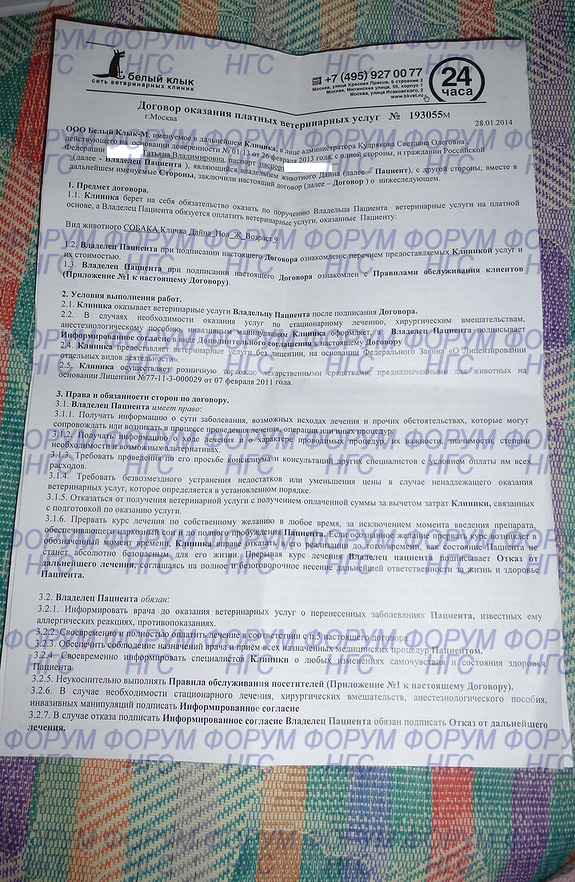 белый клык
сеть ветеринарных клиник
+7 (495) 927 00 77
Москва, улица Красная Пресня, 6 строение 2
Москва, Митинская улица, 55, корпус 1
Москва, улица Исаковского, 2
www.bkvet.ru
24
часа
Договор оказания платных ветеринарных услуг № 193055м
г.Москва
28.01.2014
ООО Белый Клык-М, именуемое в дальнейшем Клиника, в лице администратора Кудрякова Светлана Олеговна,
действующего на основании доверенности № 01/13 от 26 февраля 2013 года, с одной стороны, и гражданин Российской
Федерации Татьяна Владимировна, паспорт
(далее – Владелец Пациента ), являющийся владельцем животного Дайна (далее – Пациент), с другой стороны, вместе в
дальнейшем именуемые Стороны, заключили настоящий договор (далее – Договор ) о нижеследующем.
1. Предмет договора.
1.1. Клиника берет на себя обязательство оказать по поручению Владельца Пациента ветеринарные услуги на платной
основе, а Владелец Пациента обязуется оплатить ветеринарные услуги, оказанные Пациенту:
Вид животного СОБАКА Кличка Дайна Пол Ж Возраст 9
1.2. Владелец Пациента при подписании настоящего Договора ознакомлен с перечнем предоставляемых Клиникой услуг и
их стоимостью.
1.3. Владелец Пациента при подписании настоящего Договора ознакомлен с Правилами обслуживания клиентов
(Приложение №1 к настоящему Договору).
2. Условия выполнения работ.
2.1. Клиника оказывает ветеринарные услуги Владельцу Пациента после подписания Договора.
2.2. В случаях необходимости оказания услуг по стационарному лечению, хирургическим вмешательствам,
анестезиологическому пособию, инвазивным манипуляциям Клиника оформляет, а Владелец Пациента подписывает
Информированное согласие на данный вид услуг (Дополнительное соглашение) к настоящему Договору
2.4. Клиника предоставляет ветеринарные услуги без лицензии, на основании Федерального Закона «О Лицензировании
отдельных видов деятельности».
2.5. Клиника осуществляет розничную торговлю лекарственными средствами, предназначенными для животных на
основании Лицензии №77-11-3-000029 от 07 февраля 2011 года.
3. Права и обязанности сторон по договору.
3.1. Владелец Пациента имеет право:
3.1.1. Получать информацию о сути заболевания, возможных исходах лечения и прочих обстоятельствах, которые могут
сопровождать или возникнуть в процессе проведения лечения, операции или иных процедур
3.1.2. Получать информацию о ходе (факте), характере проводимых процедур, их важности, значимости, степени
необходимости, возможных альтернативах.
3.1.3. Требовать проведения по его просьбе консилиума и консультаций других специалистов с условием оплаты им всех
расходов.
3.1.4. Требовать безвозмездного устранения недостатков или уменьшения цены в случае ненадлежащего оказания
ветеринарных услуг, которое определяется в установленном порядке.
3.1.5. Отказаться от получения ветеринарной услуги с получением оплаченной суммы за вычетом затрат Клиники, связанных
с подготовкой по оказанию услуги.
3.1.6. Прервать курс лечения по собственному желанию в любое время, с исключением момента введения препарата,
станет абсолютно безопасным для его жизни. Прерывая курс лечения, Владелец пациента подписывает Отказ от
дальнейшего лечения, основываясь на полное и безоговорочное несение дальнейшей ответственности за жизнь и здоровье
Пациента.
3.2. Владелец Пациента обязан:
3.2.1. Информировать врача до оказания ветеринарных услуг о перенесенных заболеваниях Пациента, известных ему
аллергических реакциях, противопоказаниях.
3.2.2. Своевременно и полностью оплатить лечение в соответствии с п.5 настоящего договора.
3.2.3. Обеспечить соблюдение назначений врача и прием всех назначенных медицинских процедур Пациентом.
3.2.4. Своевременно информировать специалистов Клиники о любых изменениях самочувствия и состояния здоровья
Пациента.
3.2.5. Неукоснительно выполнять Правила обслуживания посетителей (Приложение №1 к настоящему Договору).
3.2.6. В случае необходимости стационарного лечения, хирургических вмешательств, анестезиологического пособия,
инвазивных манипуляций подписать Информированное согласие
3.2.7. В случае отказа подписать Информированное согласие Владелец Пациента обязан подписать Отказ от дальнейшего
лечения.
ФОРУМ НГС